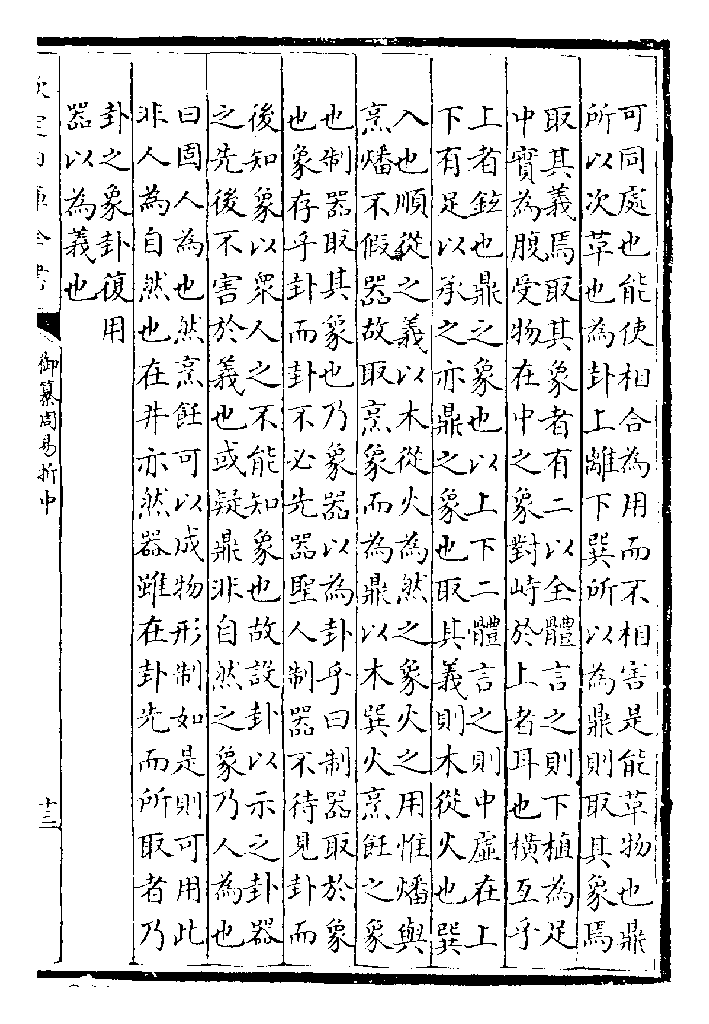 可同處也能使相合為用而不相害是能革物也鼎
所以次革也為卦上離下巽所以為鼎則取其象焉
取其義焉取其象者有二以全體言之則下植為足
中實為腹受物在中之象對峙於上者耳也橫亙乎
上者鉉也鼎之象也以上下二體言之則中虛在上
下有足以承之亦鼎之象也取其義則木從火也巽
入也順從之義以木從火為然之象火之用惟燔與
烹燔不假器故取烹象而為鼎以木巽火烹飪之象
也制器取其象也乃象器以為卦乎曰制器取於象
也象存乎卦而卦不必先器聖人制器不待見卦而
後知象以衆人之不能知象也故設卦以示之卦器
之先後不害於義也或疑鼎非自然之象乃人為也
曰固人為也然烹飪可以成物形制如是則可用此
非人為自然也在井亦然器雖在卦先而所取者乃
卦之象卦復用
器以為義也
欽定四庫全書
御纂周易折中
十三